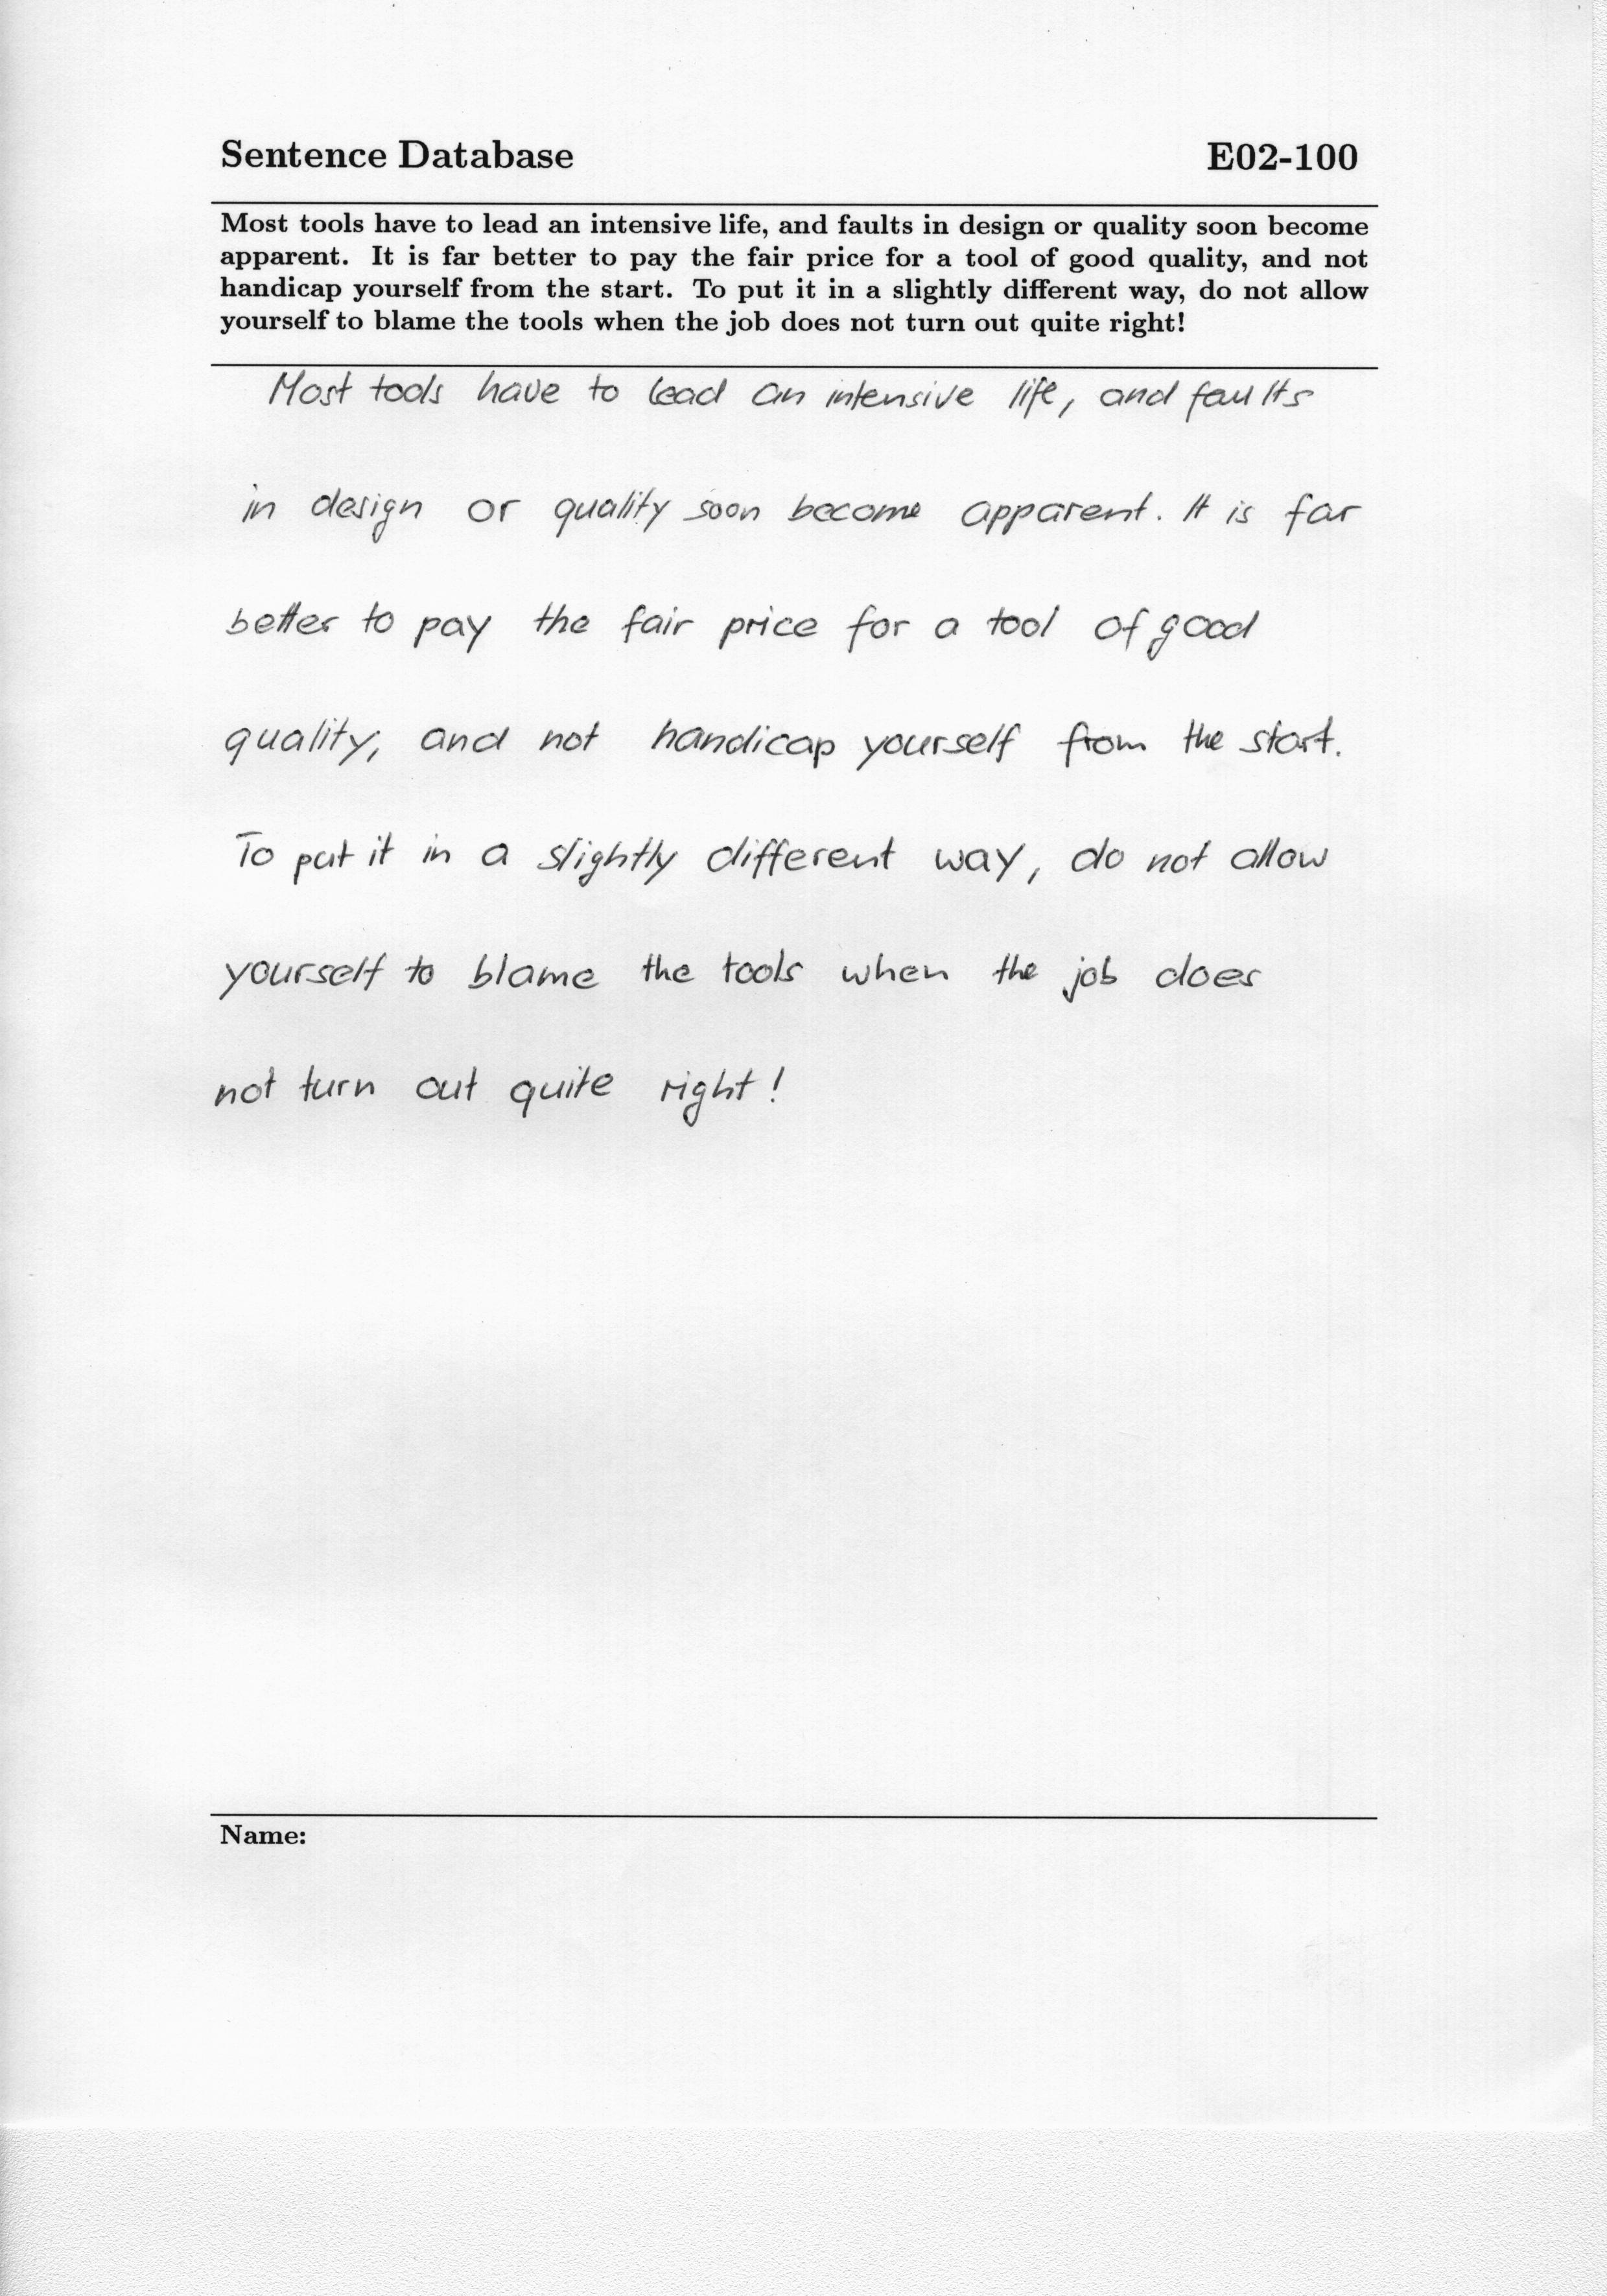 Sentence Database E02-100
Most tools have to lead an intensive life, and faults in design or quality soon become
apparent. It is far better to pay the fair price for a tool of good quality, and not
handicap yourself from the start. To put it in a slightly different way, do not allow
yourself to blame the tools when the job does not turn out quite right!
Most tools have to lead an intensive life, and faults
in design or quality soon become apparent. It is far
better to pay the fair price for a tool of good
quality, and not handicap yourself from the start.
To put it in a slightly different way, do not allow
yourself to blame the tools when the job does
not turn out quite right!
Name: